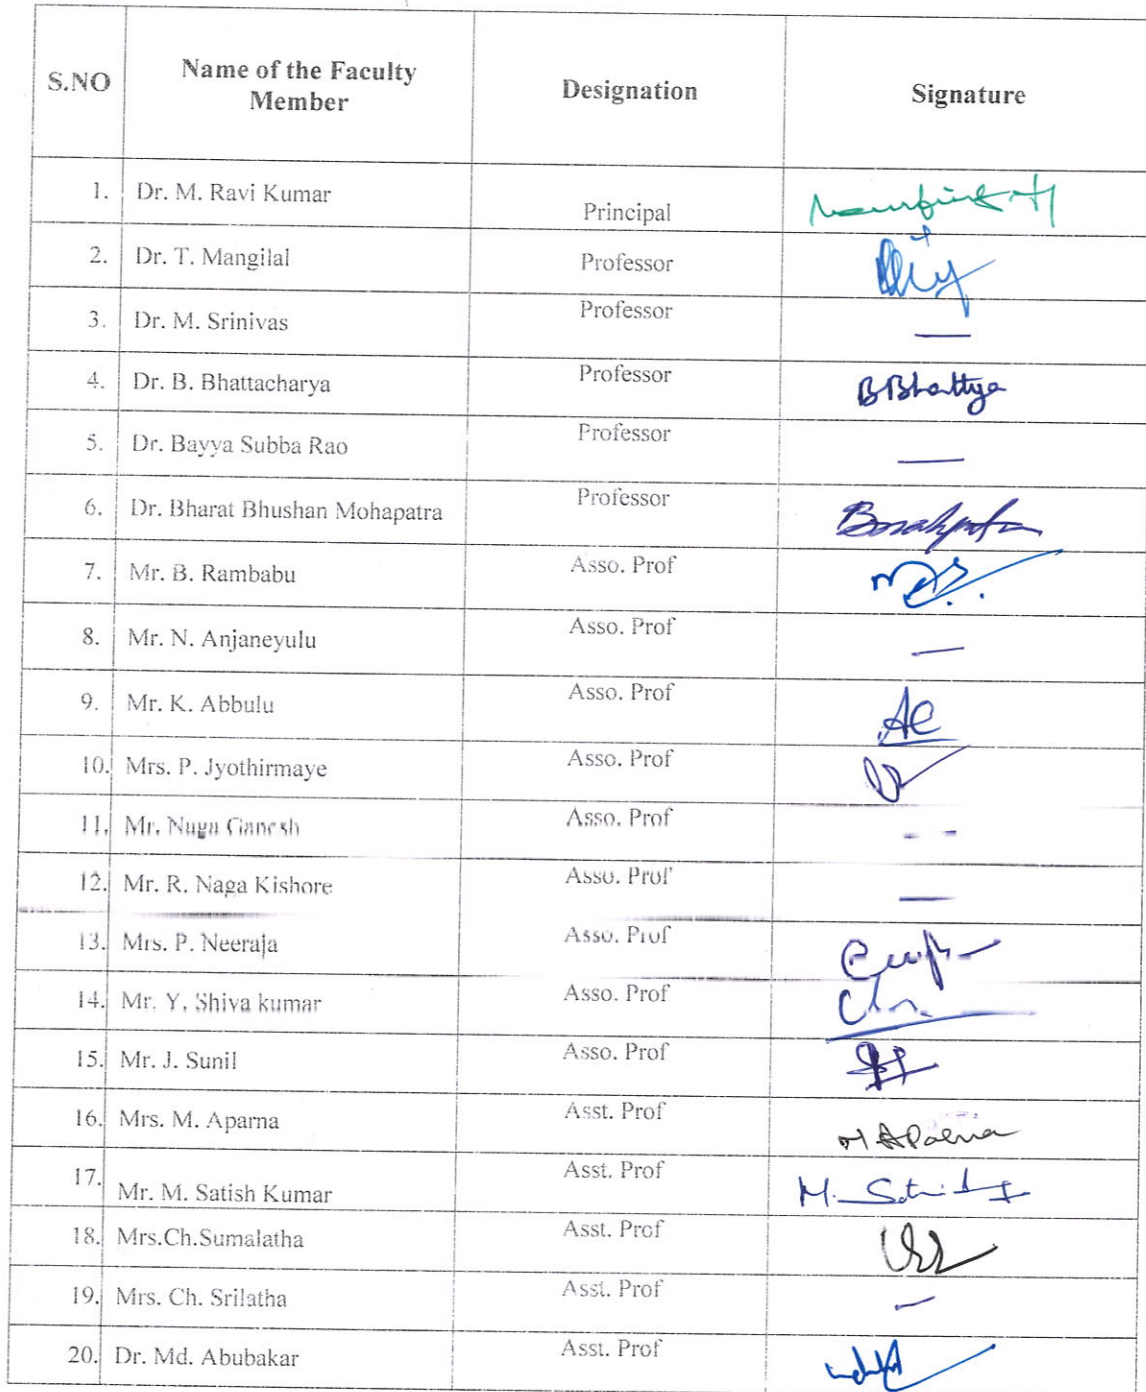 S.NO Name of the Faculty Member Designation Signature
1. Dr. M. Ravi Kumar Principal
2. Dr. T. Mangilal Professor
3. Dr. M. Srinivas Professor —
4. Dr. B. Bhattacharya Professor
5. Dr. Bayya Subba Rao Professor —
6. Dr. Bharat Bhushan Mohapatra Professor
7. Mr. B. Rambabu Asso. Prof
8. Mr. N. Anjaneyulu Asso. Prof —
9. Mr. K. Abbulu Asso. Prof
10. Mrs. P. Jyothirmaye Asso. Prof
11. Mr. Naga Ganesh Asso. Prof - -
12. Mr. R. Naga Kishore Asso. Prof —
13. Mrs. P. Neeraja Asso. Prof
14. Mr. Y. Shiva kumar Asso. Prof
15. Mr. J. Sunil Asso. Prof
16. Mrs. M. Aparna Asst. Prof
17. Mr. M. Satish Kumar Asst. Prof
18. Mrs.Ch.Sumalatha Asst. Prof
19. Mrs. Ch. Srilatha Asst. Prof —
20. Dr. Md. Abubakar Asst. Prof